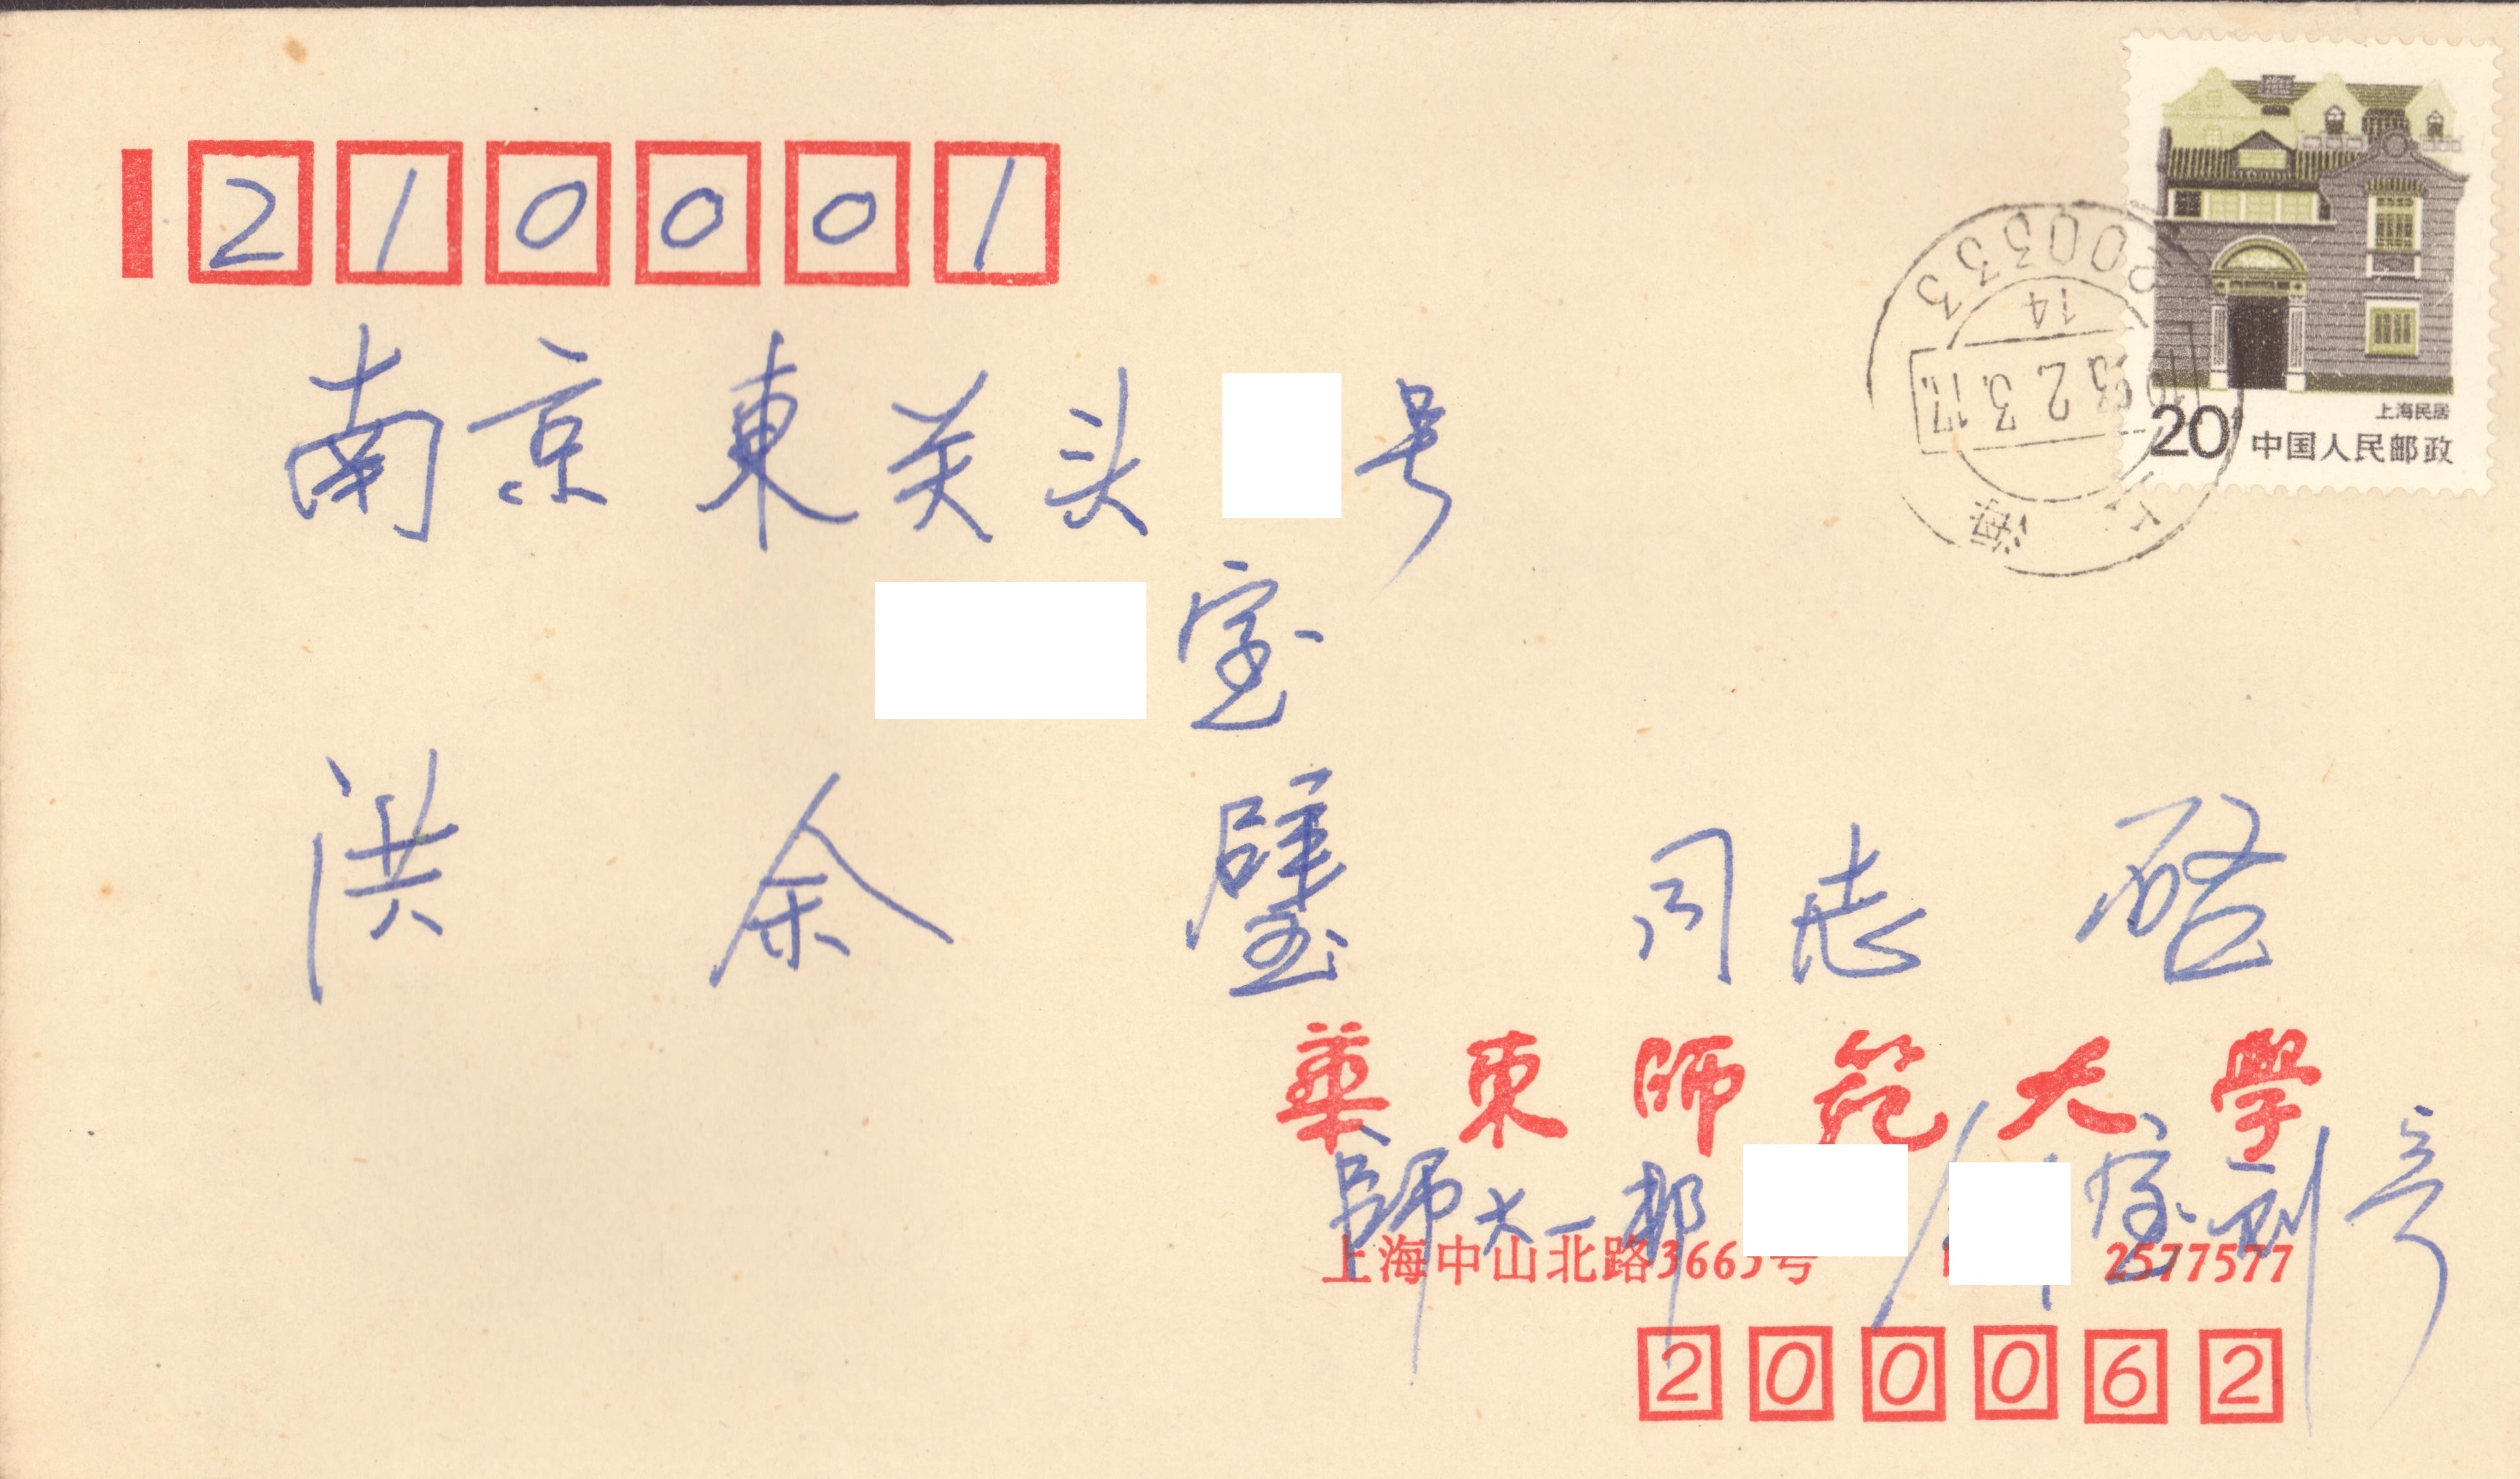 210001
上海民居
20分 中国人民邮政
200333
14
1993.2.3.17
上海
南京東关头 号
室
洪余璧同志启
華東師范大學
師大一邨 室 刘寄
上海中山北路3663号 2577577
200062